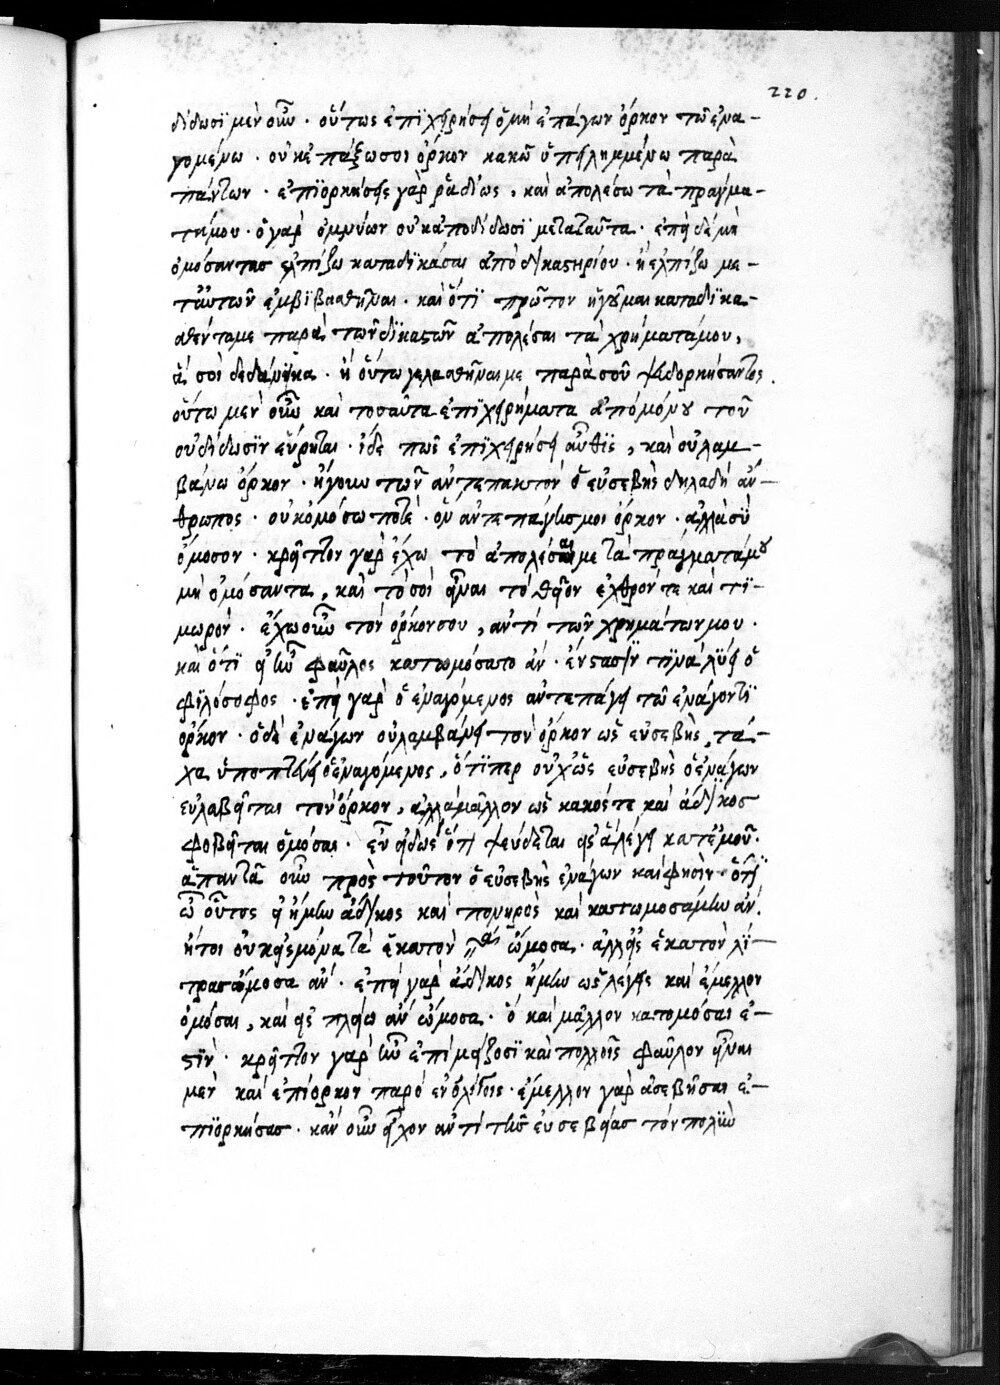 220.
δίδωσϊ μὲν οὖν · οὕτως ἐπϊχειρήσει ὁ μὴ ἐπάγων ὅρκον τῶ ἐνα-
γομένω · οὐκ ἐπάξω σοι ὅρκον κακῶ ὑπειλημμένω παρὰ
πάντων · ἐπϊορκήσεις γὰρ ῥαδίως, καὶ ἀπολέσω τὰ πράγμα-
τά μου · ὁ γὰρ ὀμνύων οὐκ ἀποδίδωσϊ μετὰ ταῦτα · ἐπεὶ δὲ μὴ
ὀμόσαντας ἐλπίζω καταδϊκάσαι ἀπὸ δικαστηρίου · ἢ ἐλπίζω με-
τ' αὐτῶν ἐμβϊβασθῆναι · καὶ ὅτϊ πρῶτον ἡγοῦμαι καταδϊκα-
σθέντα με παρὰ τῶν δϊκαστῶν ἀπολέσαι τὰ χρήματά μου,
ἅ σοι δεδάνεικα · ἢ οὕτω γελασθῆναι με παρὰ σοῦ ψευδορκήσαντος.
οὕτω μὲν οὖν καὶ τοσαῦτα ἐπϊχειρήματα ἀπὸ μόνου τοῦ
οὐ δίδωσϊν εὕρηται · ἴδε πῶς ἐπϊχειρήσει αὖθϊς, καὶ οὐ λαμ-
βάνω ὅρκον · ἤγουν τῶν ἀντεπακτὸν ὁ εὐσεβὴς δηλαδὴ ἄν-
θρωπος · οὐκ ὀμόσω ποτὲ · οὗ ἀντεπάγεις μοι ὅρκον · ἀλλὰ σὺ
ὄμοσον · κρεῖττον γὰρ ἔχω τὸ ἀπολέσαι με τὰ πράγματά μου
μὴ ὀμόσαντα, καὶ τὸ σοὶ εἶναι τὸ θεῖον ἐχθρόν τε καὶ τϊ-
μωρόν · ἔχω οὖν τὸν ὅρκον σου, ἀντὶ τῶν χρημάτων μου ·
καὶ ὅτϊ εἰ ἦν φαῦλος κατωμόσατο ἄν · ἔνστασϊν τϊνὰ λύει ὁ
φϊλόσοφος · ἐπεὶ γὰρ ὁ ἐναγόμενος ἀντεπάγει τῶ ἐνάγοντϊ
ὅρκον · ὁ δὲ ἐνάγων οὐ λαμβάνει τὸν ὅρκον ὡς εὐσεβὴς, τά-
χα ὑποπτεύει ὁ ἐναγόμενος, ὅτϊπερ οὐχ ὡς εὐσεβὴς ὁ ἐνάγων
εὐλαβεῖται τὸν ὅρκον, ἀλλὰ μᾶλλον ὡς κακός τε καὶ ἄδικος
φοβεῖται ὀμόσαι · εὖ εἰδὼς ὅτι ψεύδεται εἰς ἃ λέγει κατ' ἐμοῦ ·
ἀπαντᾶ οὖν πρὸς τοῦτον ὁ εὐσεβὴς ἐνάγων καὶ φησὶν · ὅτϊ
ὦ οὗτος εἰ ἤμην ἄδικος καὶ πονηρὸς καὶ κατωμοσάμην ἄν ·
ἤτοι οὐκ εἰς μόνα τὰ ἑκατὸν ὤμοσα · ἀλλ' εἰς ἑκατὸν λϊ-
τρας ὤμοσα ἄν · ἐπεὶ γὰρ ἄδικος ἤμην ὡς λέγεις καὶ ἔμελλον
ὀμόσαι, καὶ εἰς πλείω ἂν ὤμοσα · ὃ καὶ μᾶλλον κατομόσαι ἐ-
στϊν · κρεῖττον γὰρ ἦν ἐπὶ μείζοσϊ καὶ πολλοῖς φαῦλον εἶναι
μὲν καὶ ἐπίορκον παρὸ ἐν ὀλίγοις · ἔμελλον γὰρ ἀσεβῆσαι ἐ-
πϊορκήσας · κἂν οὖν εἶχον ἀντὶ τῆς εὐσεβείας τὸν πολὺν